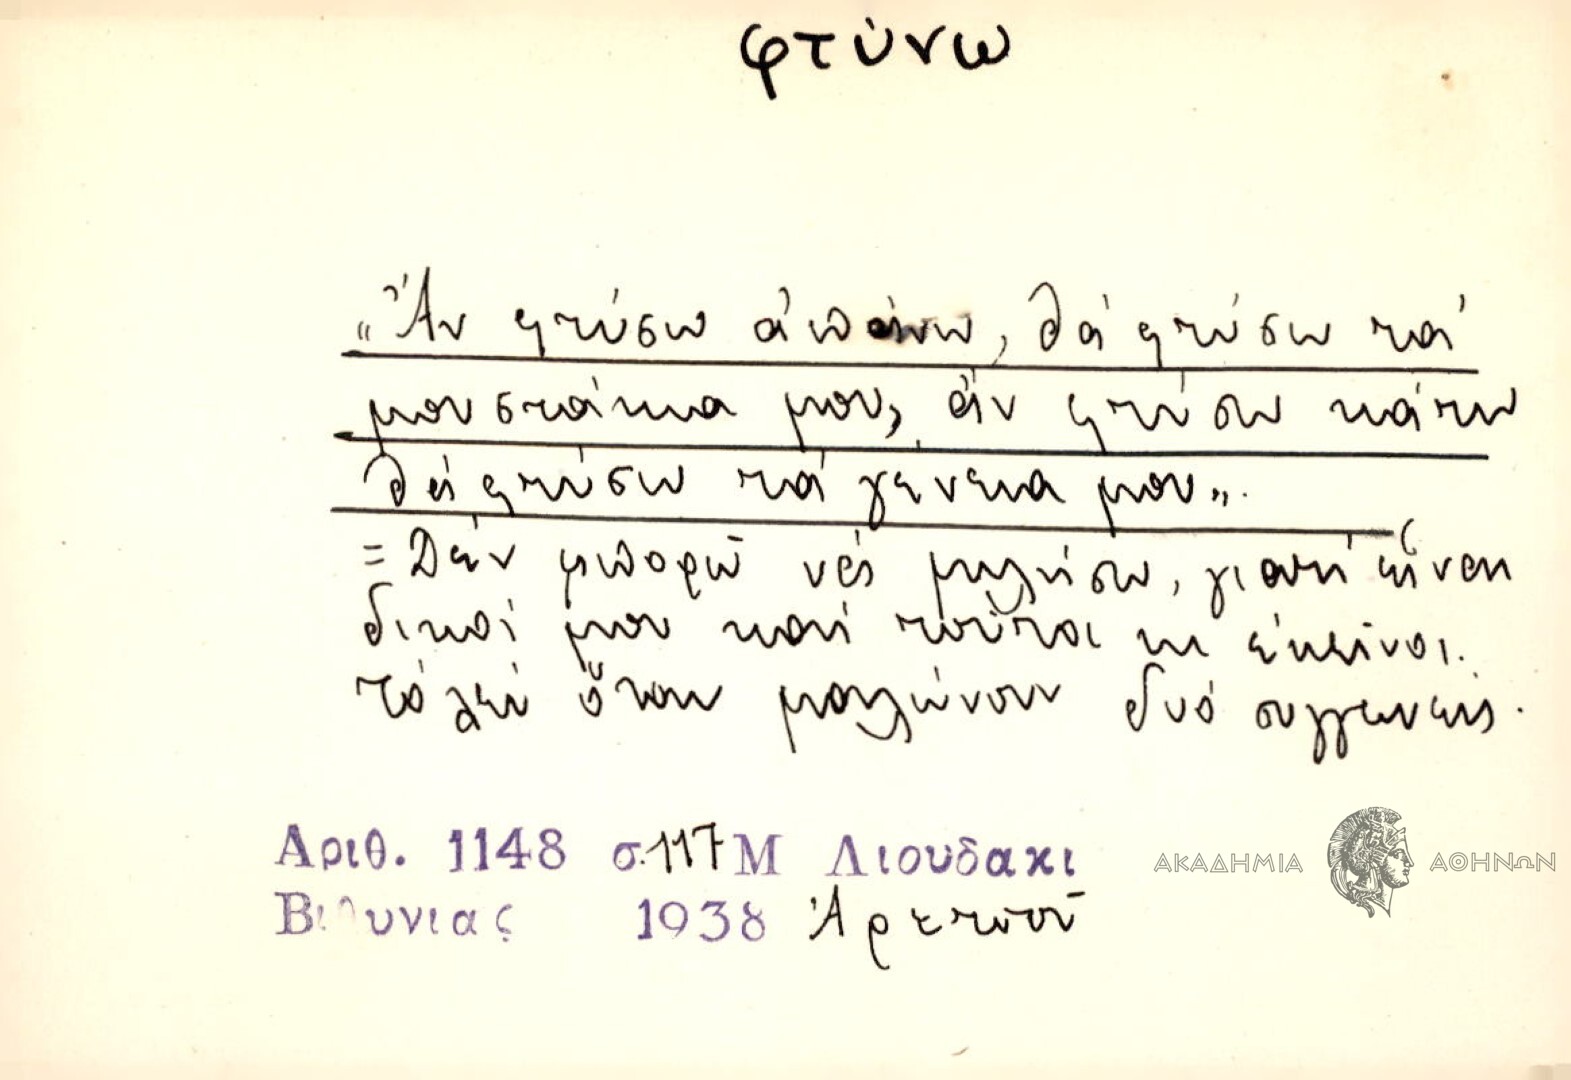 φτύνω
„Ἄν φτύσω ἀπάνω, θά φτύσω τά
μουστάκια μου, ἄν φτύσω κάτω
θά φτύσω τά γένεια μου„.
= Δέν μπορῶ νά μιλήσω, γιατί εἶναι
δικοί μου καί τοῦτοι κι ἐκεῖνοι.
τό λέν ὅταν μαλώνουν δυό συγγενεῖς.
Αριθ. 1148 σ. 117 Μ Λιουδακι
Βιθυνιας 1938 Ἀρετσοῦ
ΑΚΑΔΗΜΙΑ ΑΘΗΝΩΝ